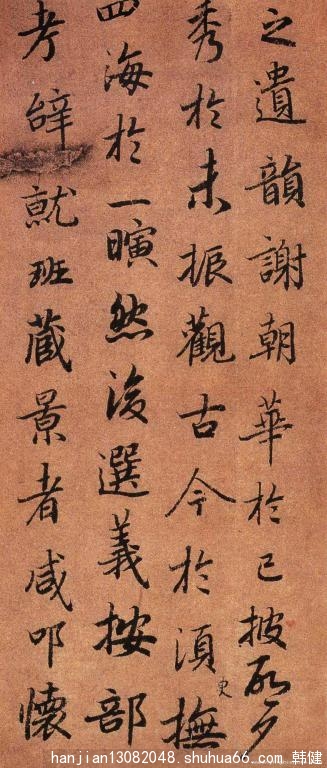 之遺韻謝朝華於已披啓夕
秀於未振觀古今於須臾撫
四海於一瞚然後選義按部
考辝就班藏景者咸叩懷
hanjian13082048. shuhua66.com 韩健